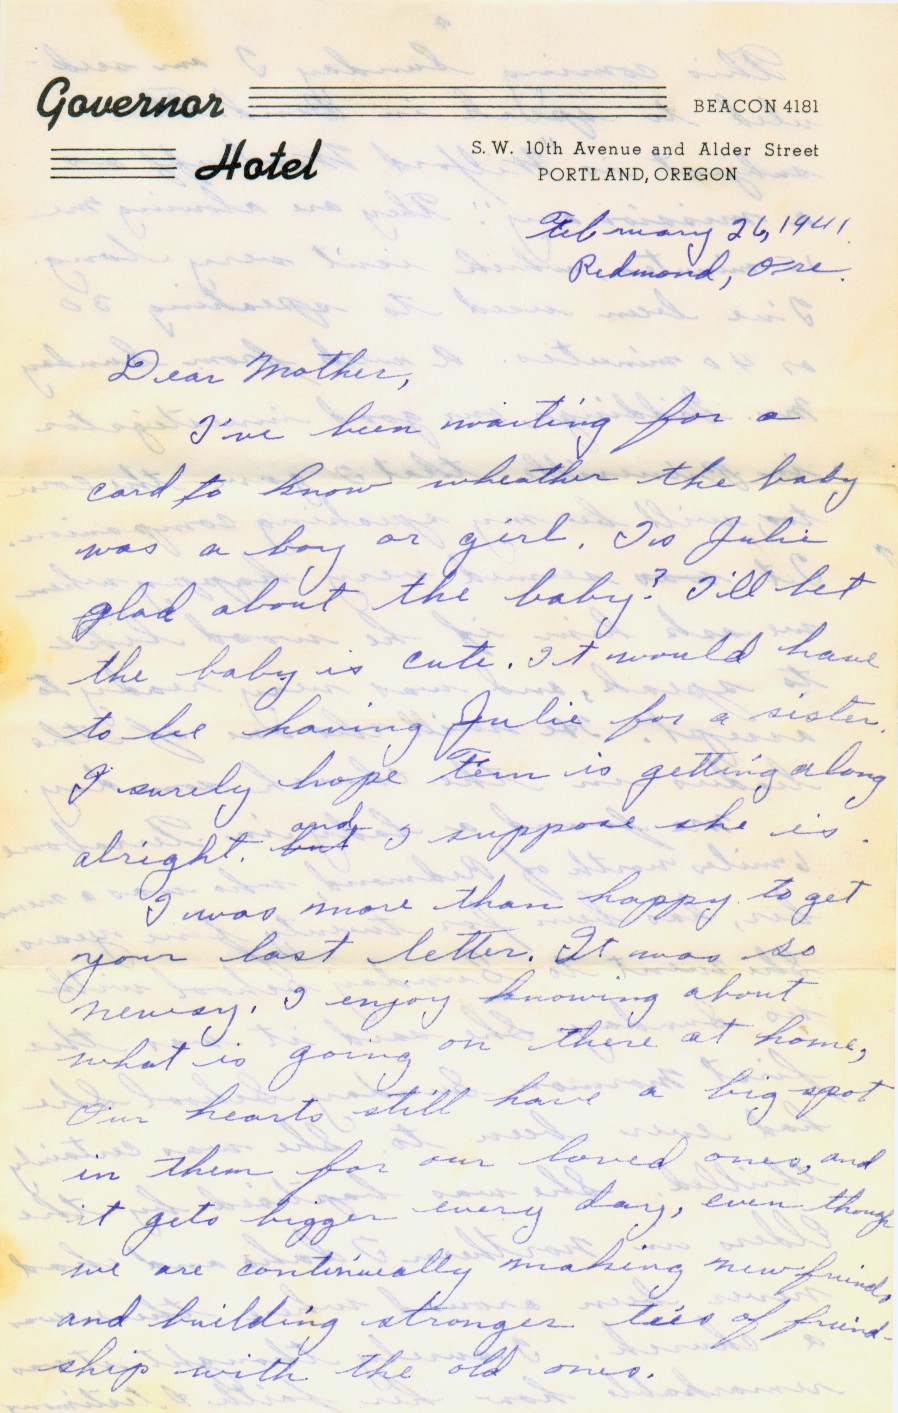 Governor Hotel
BEACON 4181
S. W. 10th Avenue and Alder Street
PORTLAND, OREGON
February 26, 1941.
Redmond, Ore.
Dear Mother,
I've been waiting for a
card to know wheather the baby
was a boy or girl. Is Julie
glad about the baby? I'll bet
the baby is cute. It would have
to be having Julie for a sister.
I surely hope Fern is getting along
alright. but and I suppose she is.
I was more than happy to get
your last letter. It was so
newsy. I enjoy knowing about
what is going on there at home,
Our hearts still have a big spot
in them for our loved ones, and
it gets bigger every day, even though
we are continually making new friends
and building stronger ties of friend-
ship with the old ones.